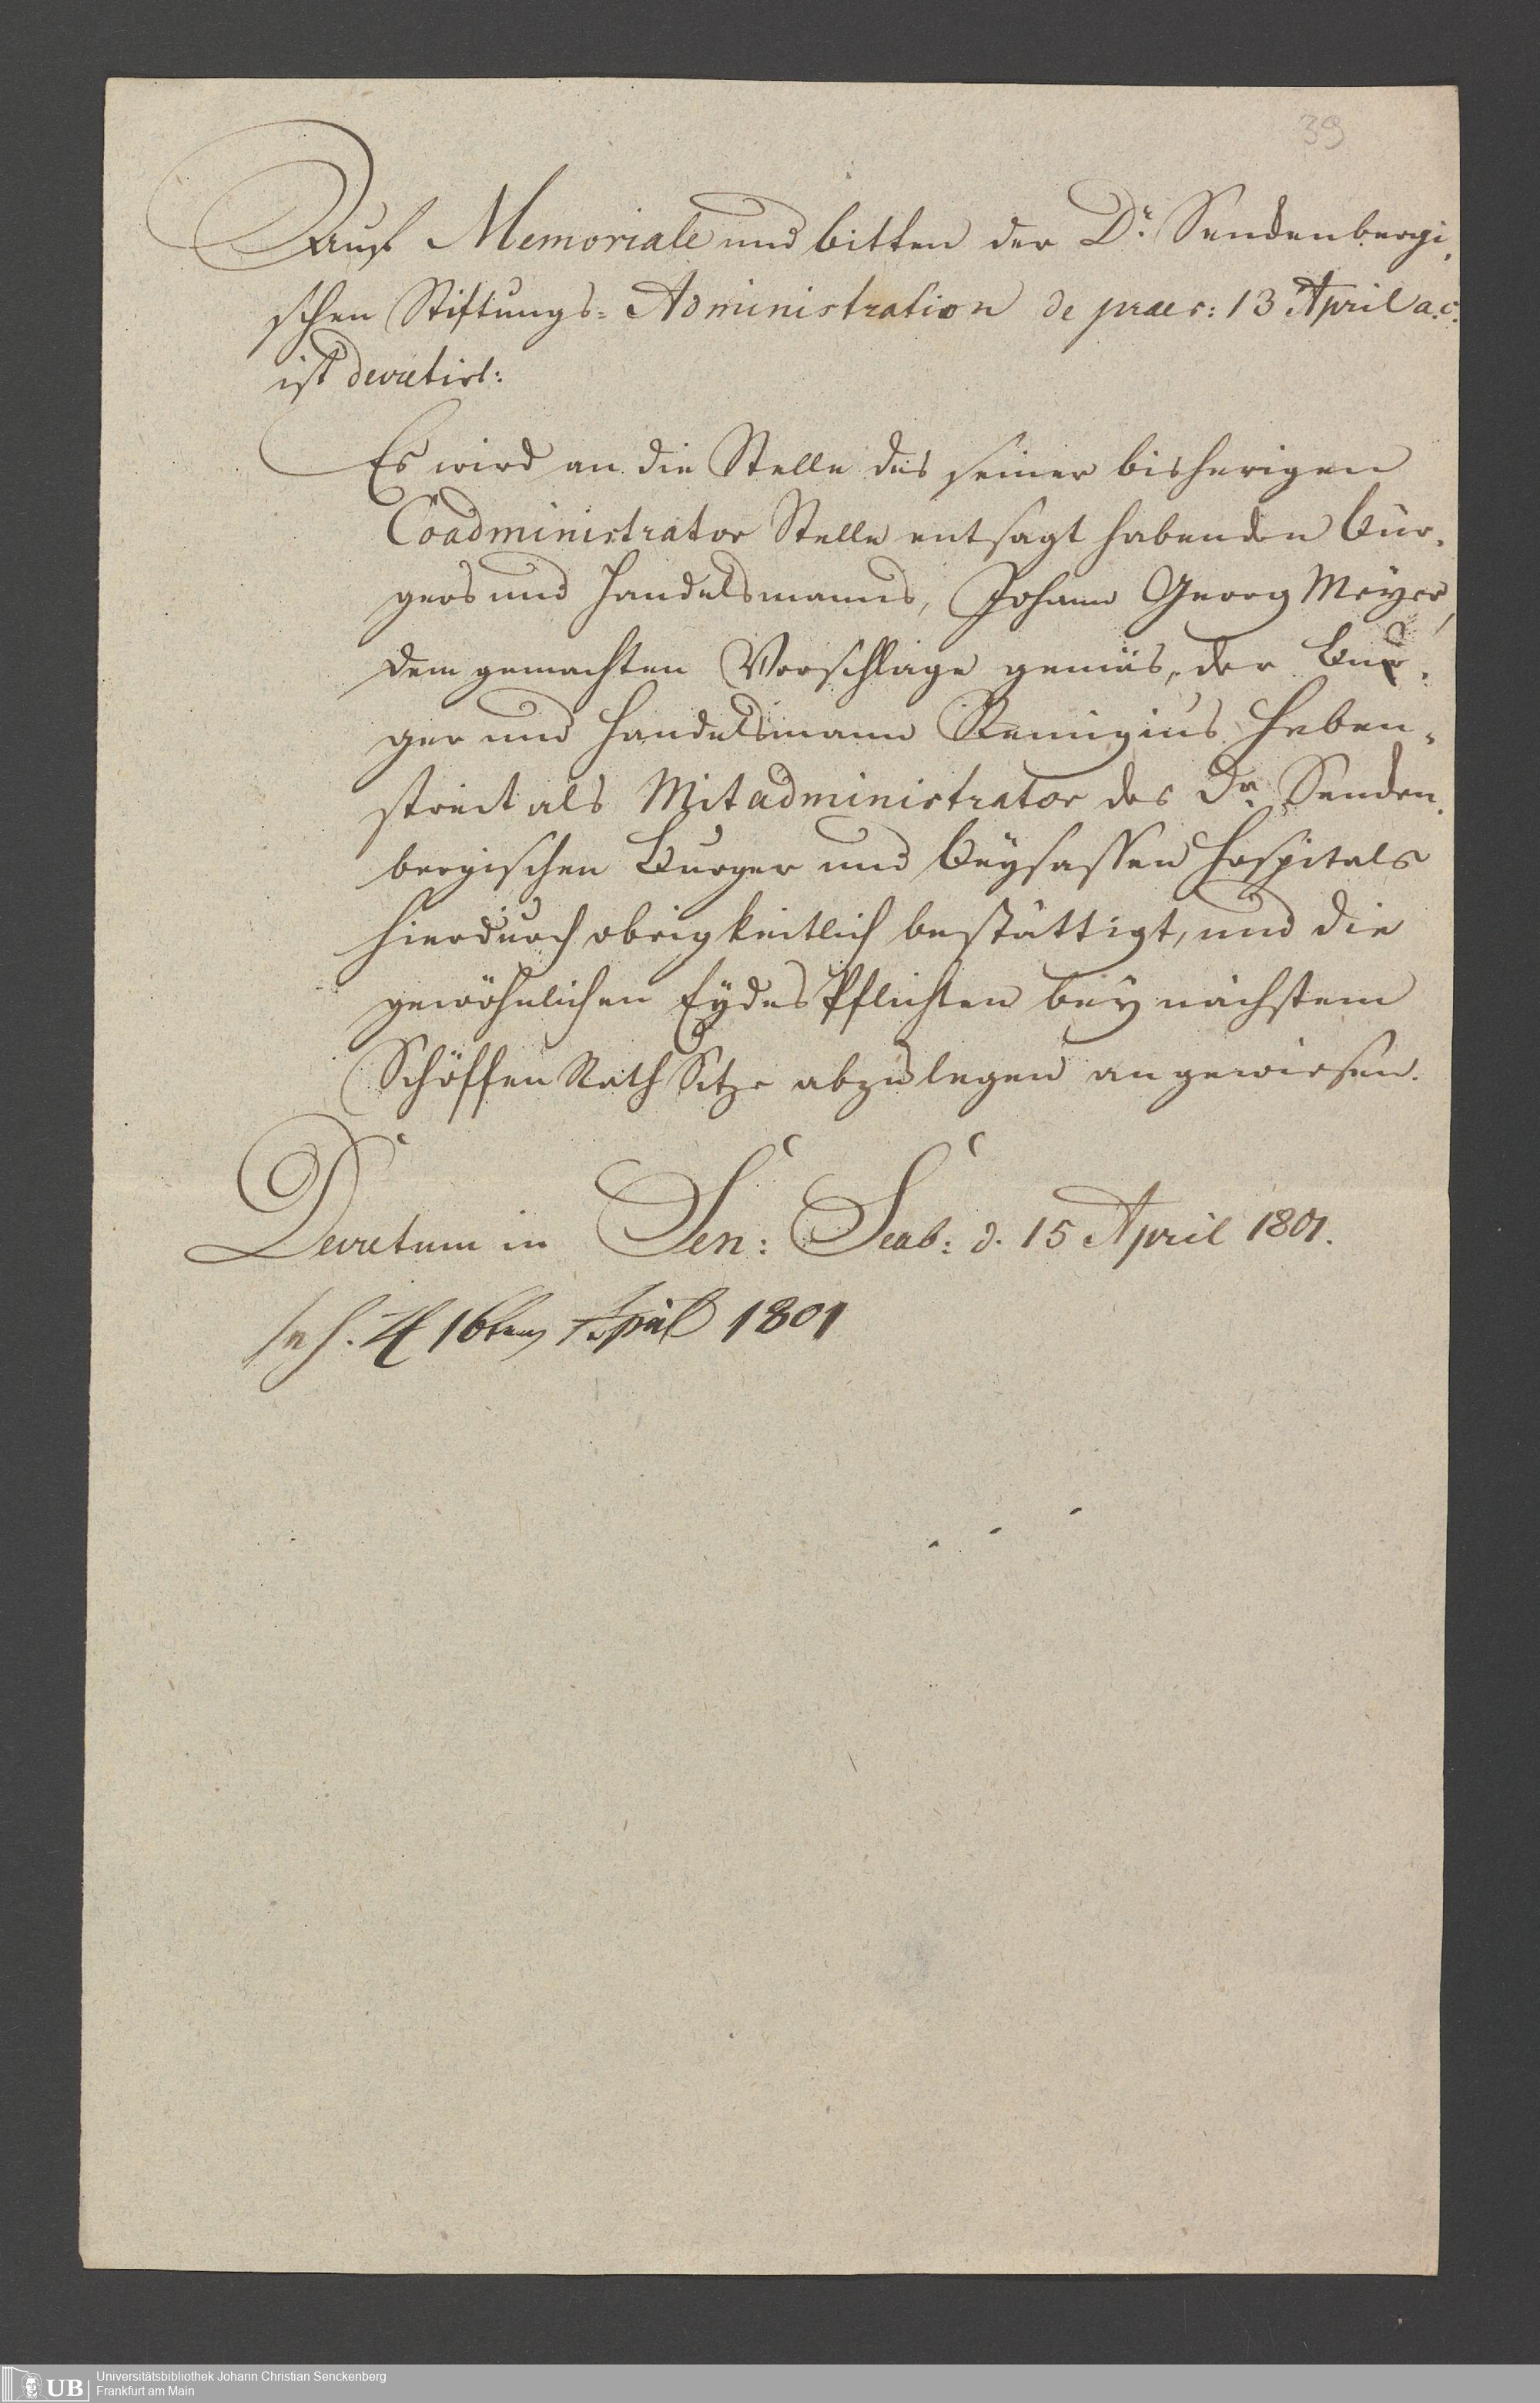 39
Auf Memoriale und bitten der Dr. Senckenbergi-
schen Stiftungs-Administration de praes: 13 April a. c.
ist decretirt:
Es wird an die Stelle des seiner bisherigen
Coadministrator Stelle entsagt habenden Bur-
gers und Handelsmanns, Johann Georg Meyer,
dem gemachten Vorschlage gemäs, der Bur-
ger und Handelsmann Remigius Heben-
streit als Mitadministrator des Dr. Sencken-
bergischen Burger und Beysassen Hospitals
hierdurch obrigkeitlich bestättigt, und die
gewöhnlichen Eydes Pflichten bey nächstem
Schöffen Rath Sitze abzulegen angewiesen.
Decretum in Sen: Scab: d. 15 April 1801.
16ten April 1801
UB
Universitätsbibliothek Johann Christian Senckenberg
Frankfurt am Main